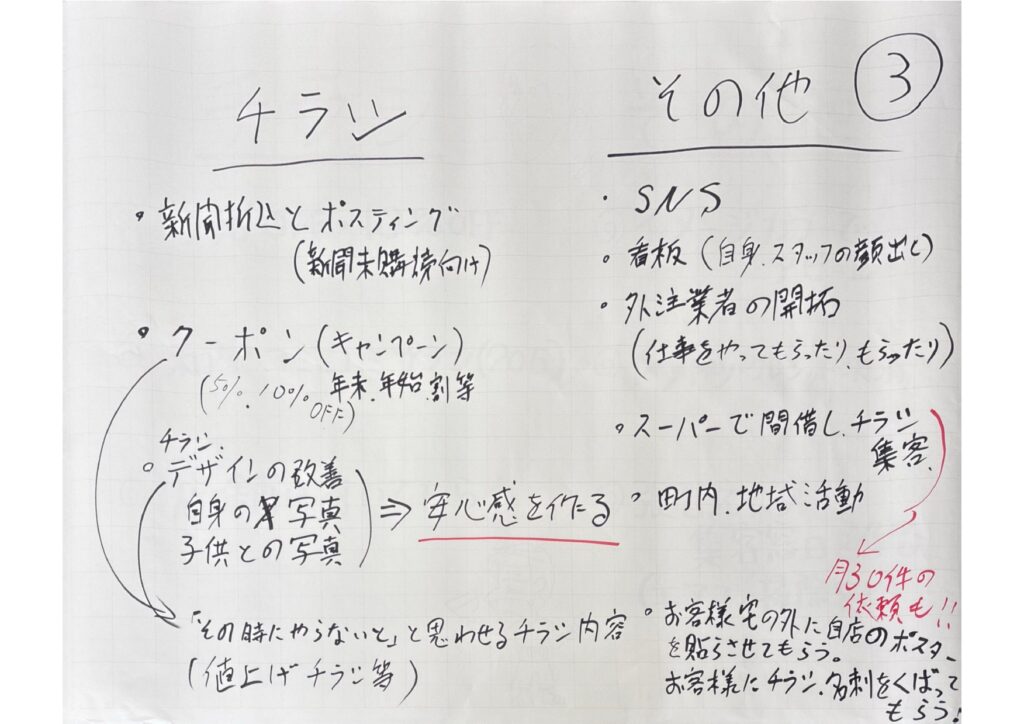 チラシ
・新聞折込とポスティング
(新聞未購読向け)
・クーポン(キャンペーン)
(5%.10%OFF) 年末.年始.割等
チラシ.
・デザインの改善
自身の写真
子供との写真
⇒ 安心感を作る
「その時にやらないと」と思わせるチラシ内容
(値上げチラシ等)
その他 ③
・SNS
・看板(自身.スタッフの顔出し)
・外注業者の開拓
(仕事をやってもらったり、もらったり)
・スーパーで間借し、チラシ
集客、
・町内.地域活動
月30件の
依頼も!!
・お客様宅の外に自店のポスター
を貼らさせてもらう。
お客様にチラシ、名刺をくばって
もらう!